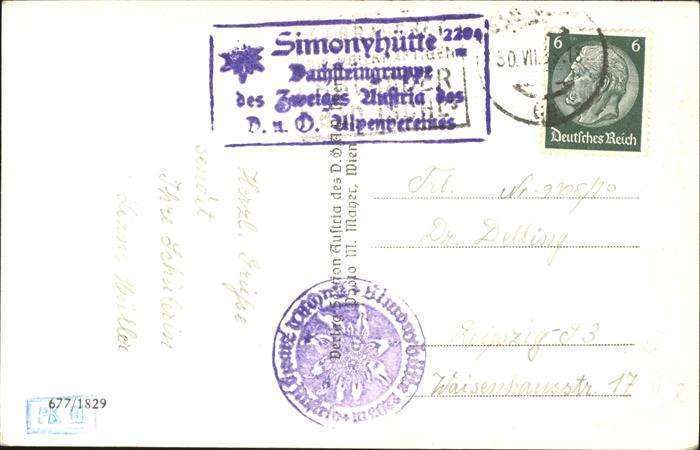 Simonyhütte 2204 m
Dachsteingruppe
des Zweiges Austria des
D. u. Ö. Alpenvereines
30.VII.
6 6
Deutsches Reich
Herzl. Grüße
sendet
Ihre Schülerin
Verlag Sektion Austria des D.Ö.A.
Photo M. Mayer, Wien
Frl.
Dr. Delling
Leipzig-S3
Waisenhausstr. 17
Simonyhütte
Austria
677/1829